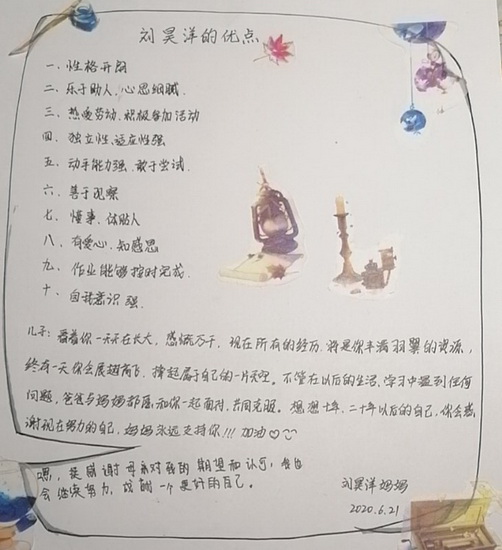 刘昊洋的优点
一、性格开朗
二、乐于助人、心思细腻.
三、热爱劳动、积极参加活动
四、独立性、适应性强
五、动手能力强、敢于尝试.
六、善于观察
七、懂事、体贴人
八、有爱心、知感恩
九、作业能够按时完成.
十、自我意识强.
儿子:看着你一天天在长大,感慨万千,现在所有的经历将是你丰满羽翼的资源,
终有一天你会展翅高飞,撑起属于自己的一片天空。不管在以后的生活、学习中遇到任何
问题,爸爸与妈妈都愿和你一起面对,共同克服。想想十年、二十年以后的自己,你会感
谢现在努力的自己,妈妈永远支持你!!!加油
嗯,很感谢母亲对我的期望和认可,
会继续努力,成创一个更好的自己。
刘昊洋妈妈
2020.6.21